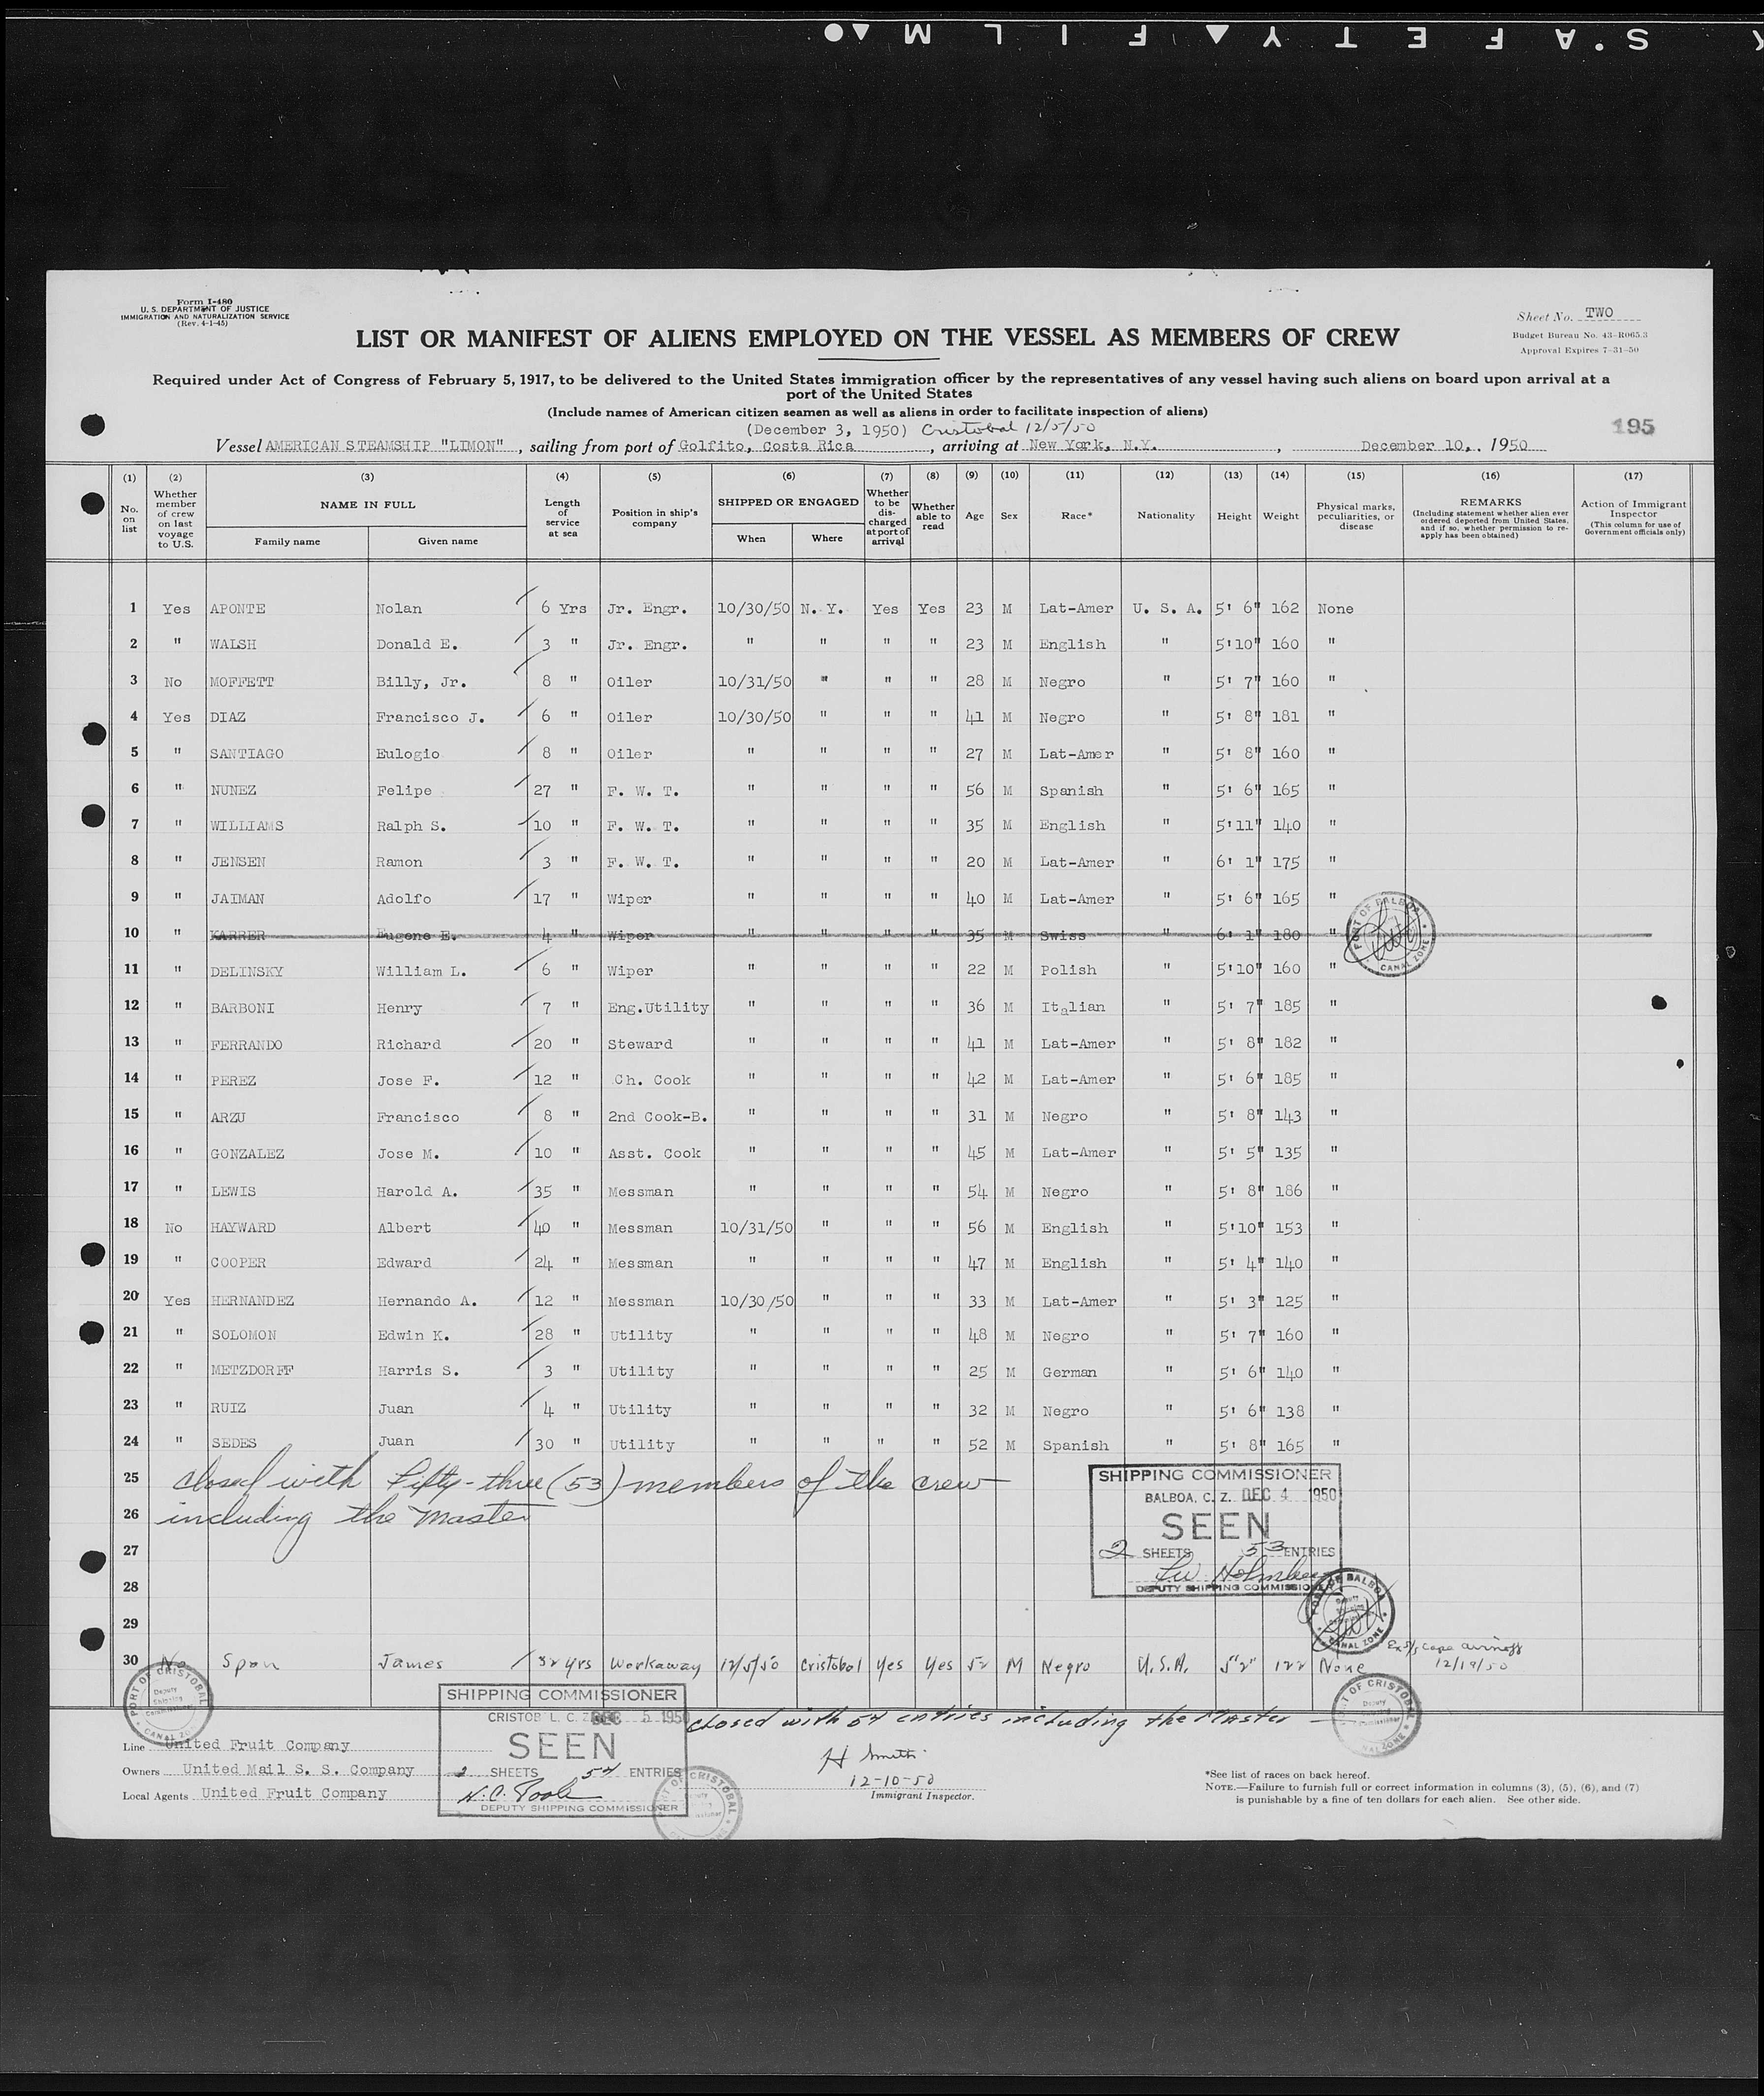 S.AFETY FILM
Form I-480
U. S. DEPARTMENT OF JUSTICE
IMMIGRATION AND NATURALIZATION SERVICE
(Rev. 4-1-45)
Sheet No. TWO
Budget Bureau No. 43-R065.3
Approval Expires 7-31-50
LIST OR MANIFEST OF ALIENS EMPLOYED ON THE VESSEL AS MEMBERS OF CREW
Required under Act of Congress of February 5, 1917, to be delivered to the United States immigration officer by the representatives of any vessel having such aliens on board upon arrival at a
port of the United States
(Include names of American citizen seamen as well as aliens in order to facilitate inspection of aliens)
(December 3, 1950) Cristobal 12/5/50
195
Vessel AMERICAN STEAMSHIP "LIMON", sailing from port of Golfito, Costa Rica, arriving at New York, N.Y., December 10, 1950
(1) (2) (3) (4) (5) (6) (7) (8) (9) (10) (11) (12) (13) (14) (15) (16) (17)
No. on list
Whether member of crew on last voyage to U.S.
NAME IN FULL
Family name
Given name
Length of service at sea
Position in ship's company
SHIPPED OR ENGAGED
When
Where
Whether to be discharged at port of arrival
Whether able to read
Age
Sex
Race*
Nationality
Height
Weight
Physical marks, peculiarities, or disease
REMARKS
(Including statement whether alien ever ordered deported from United States, and if so, whether permission to re-apply has been obtained)
Action of Immigrant Inspector
(This column for use of Government officials only)
1 Yes APONTE Nolan 6 Yrs Jr. Engr. 10/30/50 N. Y. Yes Yes 23 M Lat-Amer U. S. A. 5' 6" 162 None
2 " WALSH Donald E. 3 " Jr. Engr. " " " " 23 M English " 5'10" 160 "
3 No MOFFETT Billy, Jr. 8 " Oiler 10/31/50 " " " 28 M Negro " 5' 7" 160 "
4 Yes DIAZ Francisco J. 6 " Oiler 10/30/50 " " " 41 M Negro " 5' 8" 181 "
5 " SANTIAGO Eulogio 8 " Oiler " " " " 27 M Lat-Amer " 5' 8" 160 "
6 " NUNEZ Felipe 27 " F. W. T. " " " " 56 M Spanish " 5' 6" 165 "
7 " WILLIAMS Ralph S. 10 " F. W. T. " " " " 35 M English " 5'11" 140 "
8 " JENSEN Ramon 3 " F. W. T. " " " " 20 M Lat-Amer " 6' 1" 175 "
9 " JAIMAN Adolfo 17 " Wiper " " " " 40 M Lat-Amer " 5' 6" 165 "
10 " KARRER Eugene E. 4 " Wiper " " " " 35 M Swiss " 6' 1" 180 "
PORT OF BALBOA CANAL ZONE
11 " DELINSKY William L. 6 " Wiper " " " " 22 M Polish " 5'10" 160 "
12 " BARBONI Henry 7 " Eng.Utility " " " " 36 M Italian " 5' 7" 185 "
13 " FERRANDO Richard 20 " Steward " " " " 41 M Lat-Amer " 5' 8" 182 "
14 " PEREZ Jose F. 12 " Ch. Cook " " " " 42 M Lat-Amer " 5' 6" 185 "
15 " ARZU Francisco 8 " 2nd Cook-B. " " " " 31 M Negro " 5' 8" 143 "
16 " GONZALEZ Jose M. 10 " Asst. Cook " " " " 45 M Lat-Amer " 5' 5" 135 "
17 " LEWIS Harold A. 35 " Messman " " " " 54 M Negro " 5' 8" 186 "
18 No HAYWARD Albert 40 " Messman 10/31/50 " " " 56 M English " 5'10" 153 "
19 " COOPER Edward 24 " Messman " " " " 47 M English " 5' 4" 140 "
20 Yes HERNANDEZ Hernando A. 12 " Messman 10/30/50 " " " 33 M Lat-Amer " 5' 3" 125 "
21 " SOLOMON Edwin K. 28 " Utility " " " " 48 M Negro " 5' 7" 160 "
22 " METZDORFF Harris S. 3 " Utility " " " " 25 M German " 5' 6" 140 "
23 " RUIZ Juan 4 " Utility " " " " 32 M Negro " 5' 6" 138 "
24 " SEDES Juan 30 " Utility " " " " 52 M Spanish " 5' 8" 165 "
25 Closed with Fifty-three (53) members of the crew
26 including the Master
27
28
29
SHIPPING COMMISSIONER
BALBOA, C. Z. DEC 4 1950
SEEN
2 SHEETS 53 ENTRIES
DEPUTY SHIPPING COMMISSIONER
PORT OF BALBOA Deputy Shipping Commissioner CANAL ZONE
30 No Span James 32 yrs Workaway 12/5/50 Cristobal Yes Yes 52 M Negro U.S.A. 5'2" 122 None
12/19/50
PORT OF CRISTOBAL Deputy Shipping Commissioner CANAL ZONE
closed with 54 entries including the Master
SHIPPING COMMISSIONER
CRISTOB L. C. Z. DEC 5 1950
SEEN
2 SHEETS 54 ENTRIES
N. C. Poole
DEPUTY SHIPPING COMMISSIONER
PORT OF CRISTOBAL Deputy Shipping Commissioner CANAL ZONE
Line United Fruit Company
Owners United Mail S. S. Company
Local Agents United Fruit Company
H Smith
12-10-50
Immigrant Inspector.
*See list of races on back hereof.
NOTE.—Failure to furnish full or correct information in columns (3), (5), (6), and (7)
is punishable by a fine of ten dollars for each alien. See other side.